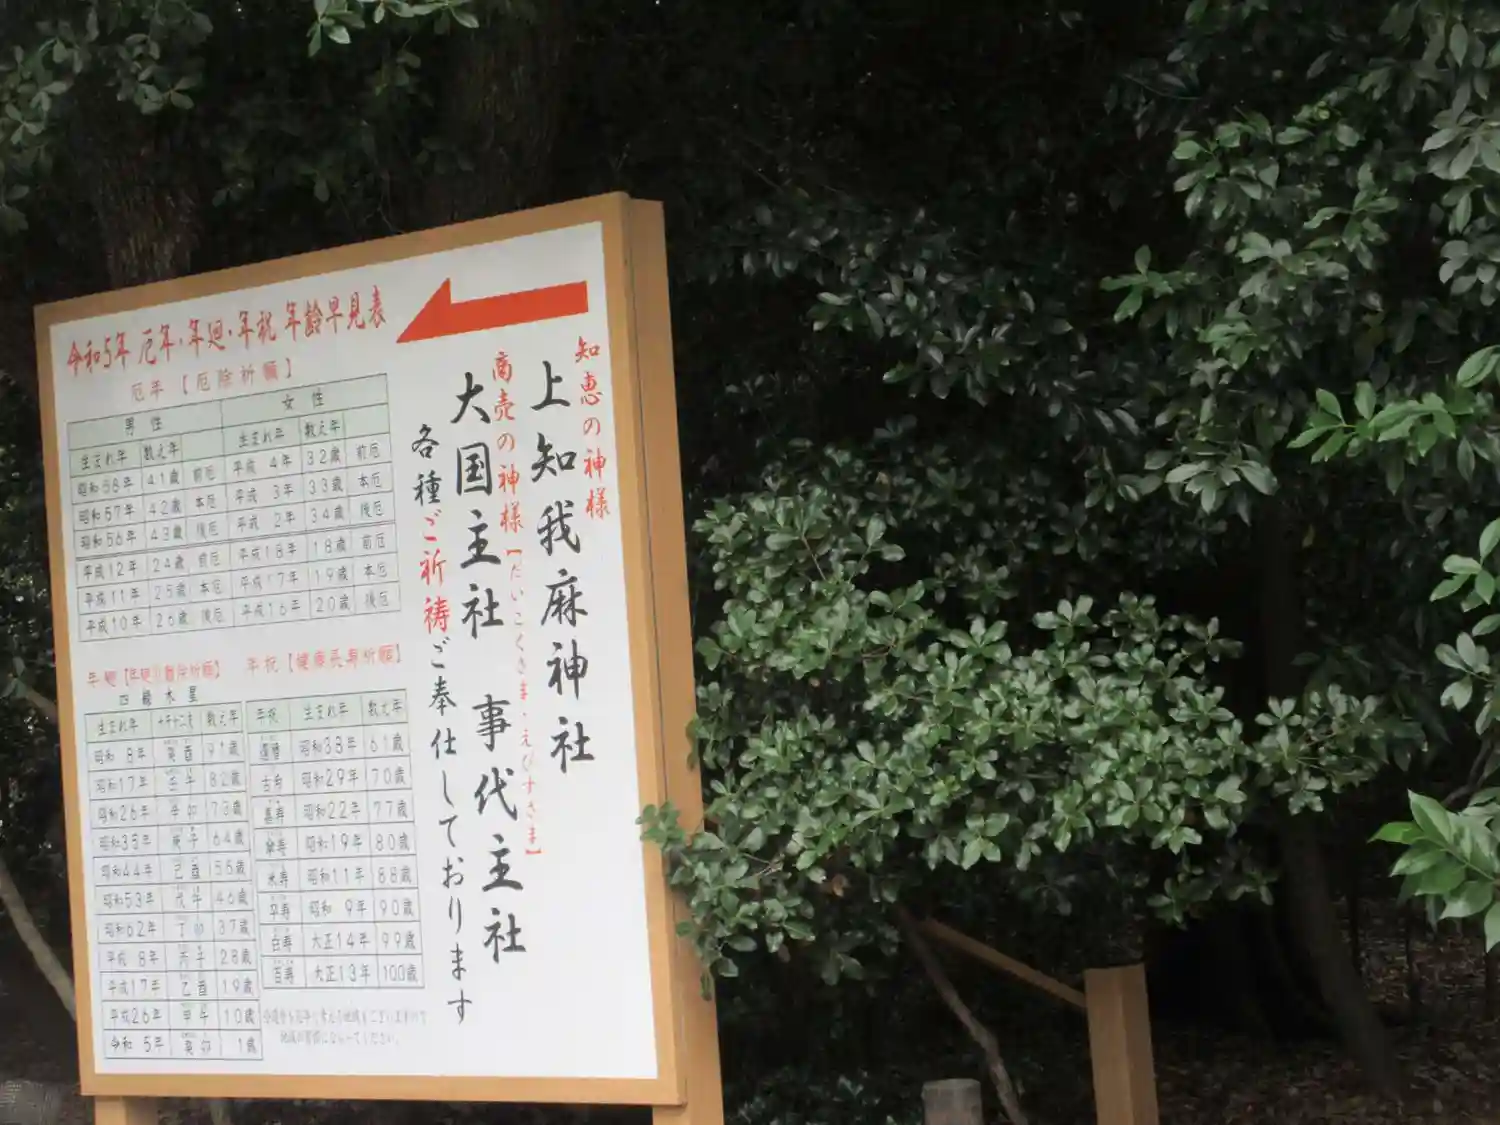 知恵の神様
上知我麻神社
商売の神様【だいこくさま・えびすさま】
大国主社 事代主社
各種ご祈祷ご奉仕しております
令和5年 厄年・年廻・年祝 年齢早見表
厄年【厄除祈願】
男性 女性
生まれ年 数え年 生まれ年 数え年
昭和58年 41歳 前厄 平成 4年 32歳 前厄
昭和57年 42歳 本厄 平成 3年 33歳 本厄
昭和56年 43歳 後厄 平成 2年 34歳 後厄
平成12年 24歳 前厄 平成18年 18歳 前厄
平成11年 25歳 本厄 平成17年 19歳 本厄
平成10年 26歳 後厄 平成16年 20歳 後厄
年廻
四緑木星
生まれ年 十干十二支 数え年
昭和 8年 癸酉 91歳
昭和17年 壬午 82歳
昭和26年 辛卯 73歳
昭和35年 庚子 64歳
昭和44年 己酉 55歳
昭和53年 戊午 46歳
昭和62年 丁卯 37歳
平成 8年 丙子 28歳
平成17年 乙酉 19歳
平成26年 甲午 10歳
令和 5年 癸卯 1歳
年祝【健康長寿祈願】
年祝 生まれ年 数え年
還暦 昭和38年 61歳
古希 昭和29年 70歳
喜寿 昭和22年 77歳
傘寿 昭和19年 80歳
米寿 昭和11年 88歳
卒寿 昭和 9年 90歳
白寿 大正14年 99歳
百寿 大正13年 100歳